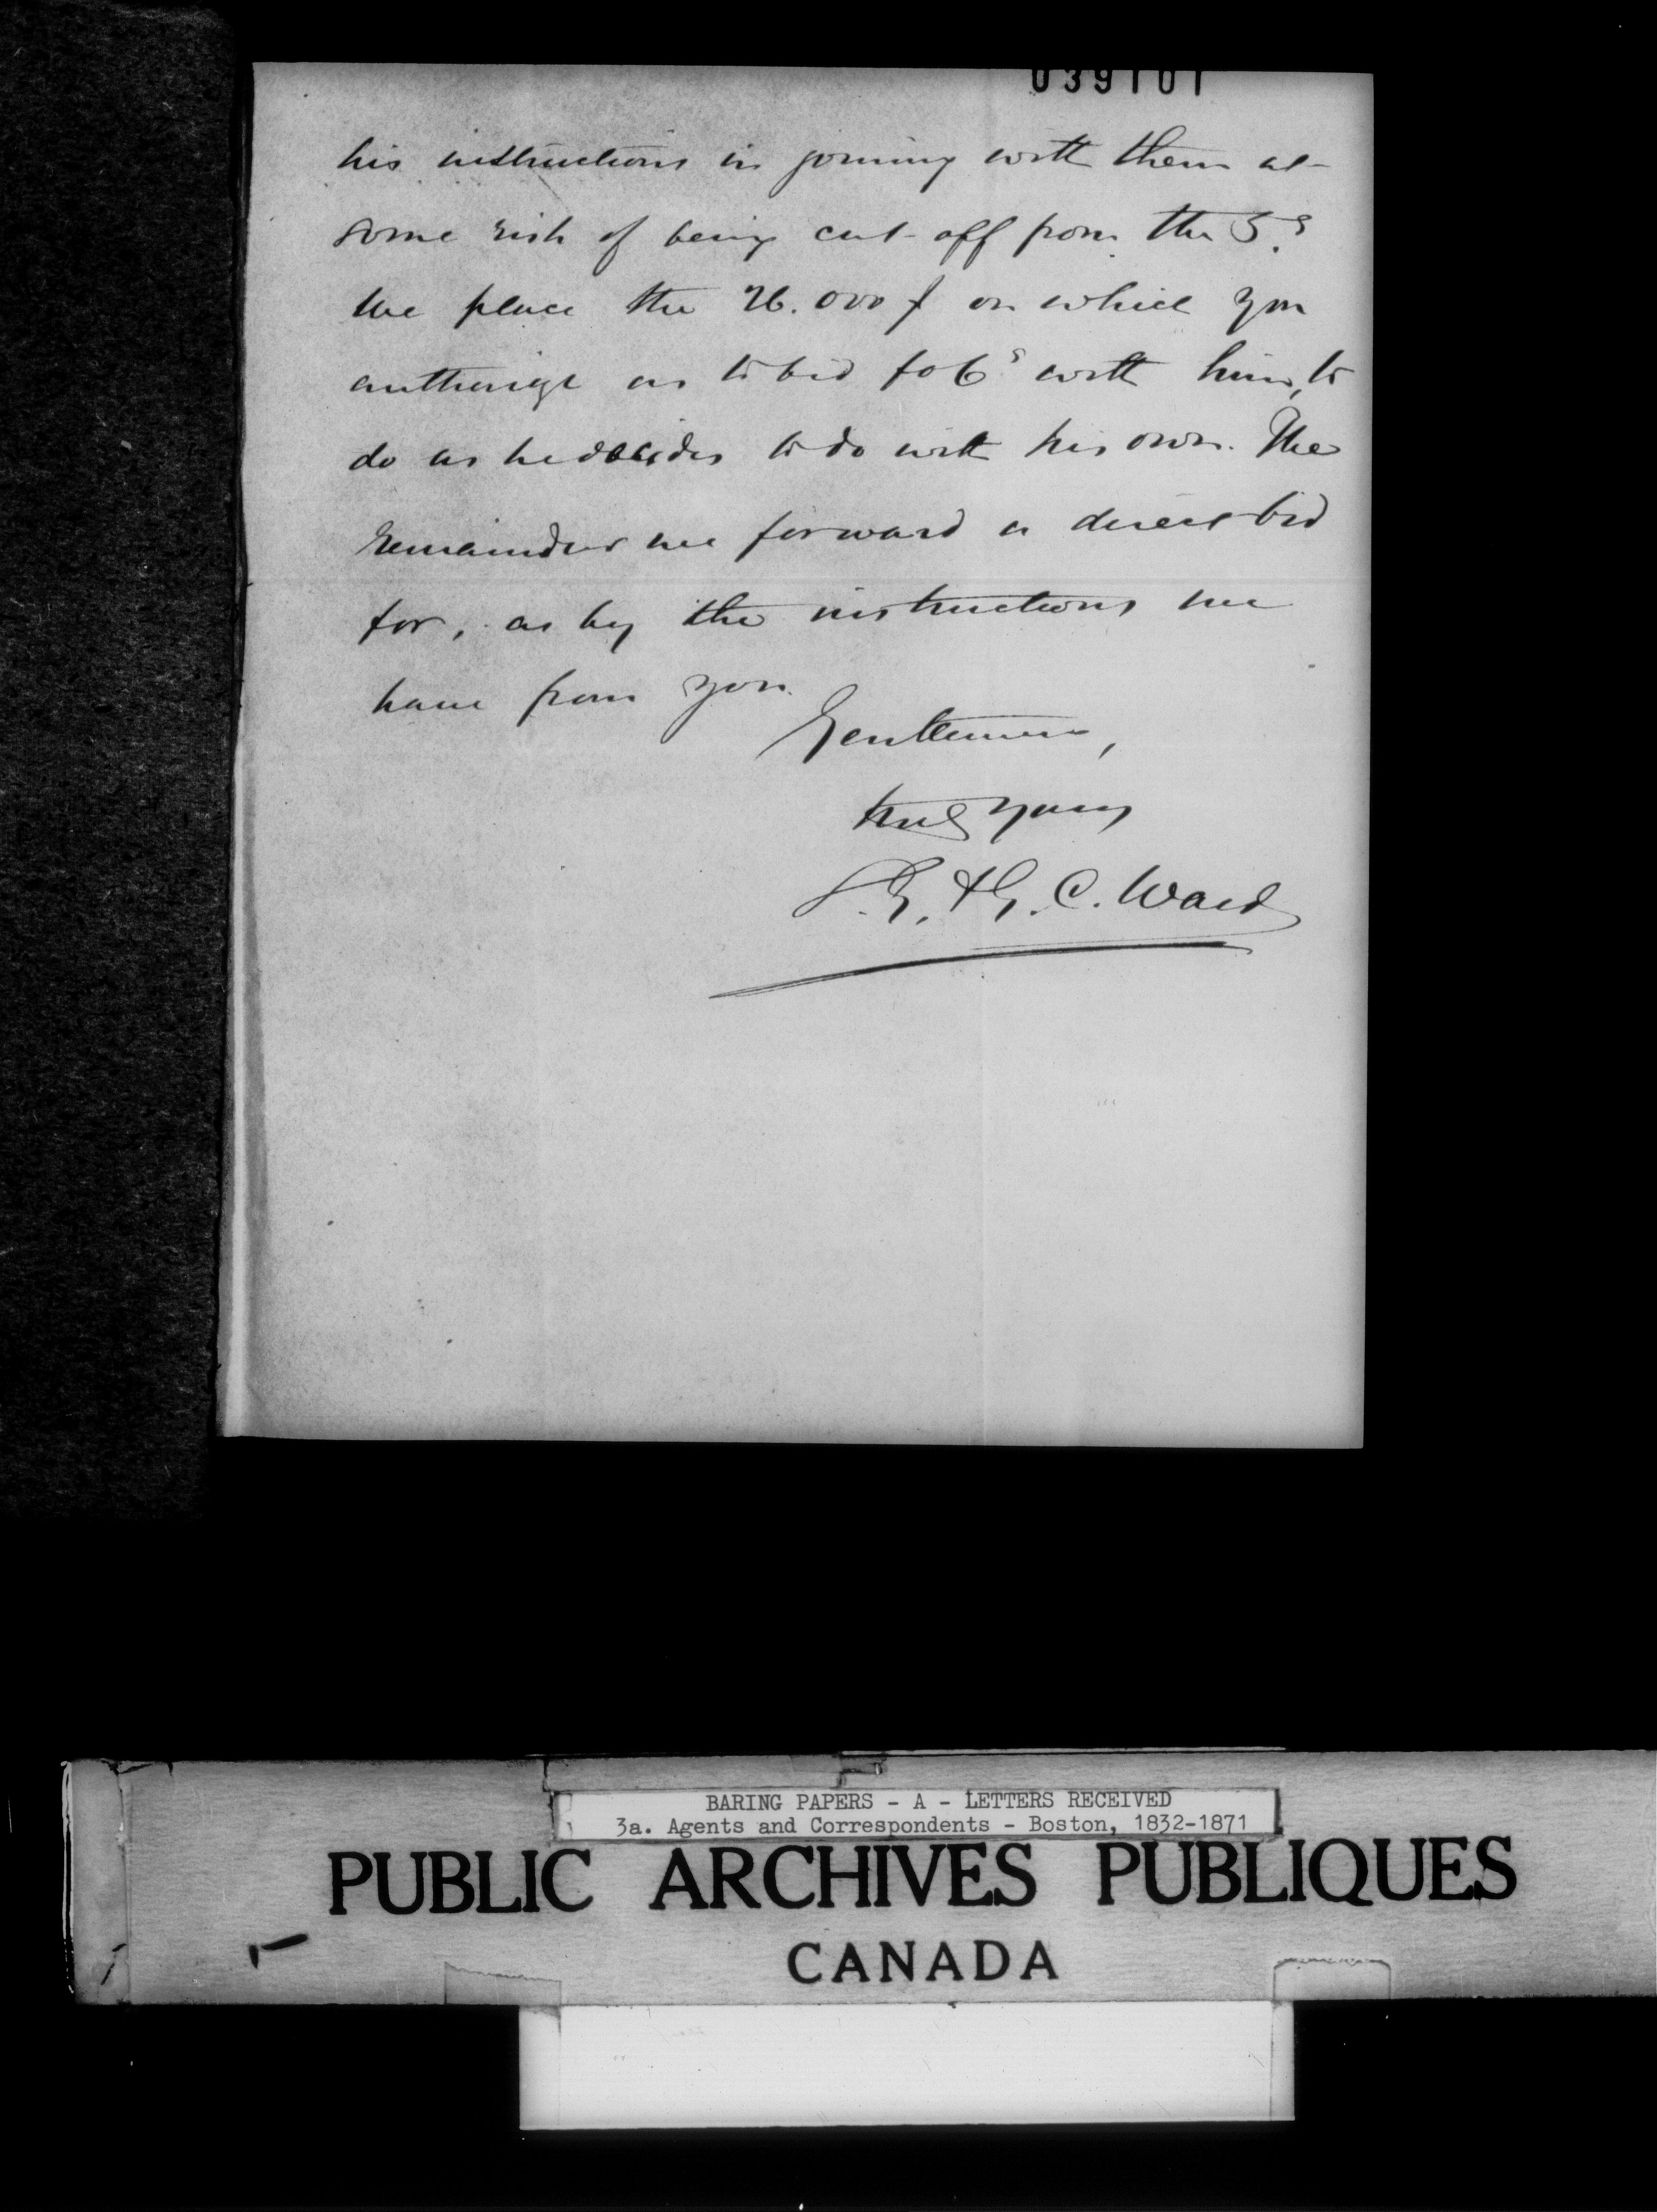 039101
his instructions in joining with them at
some risk of being cut off from the 5.s
We place the 26.000 £ on which you
authorize us to bid for 6s with him, to
do as he decides to do with his own. The
remainder we forward a direct bid
for, as by the instructions we
have from you.
Gentlemen,
truly yours
S. G. & G. C. Ward
BARING PAPERS - A - LETTERS RECEIVED
3a. Agents and Correspondents - Boston, 1832-1871
PUBLIC ARCHIVES PUBLIQUES
CANADA